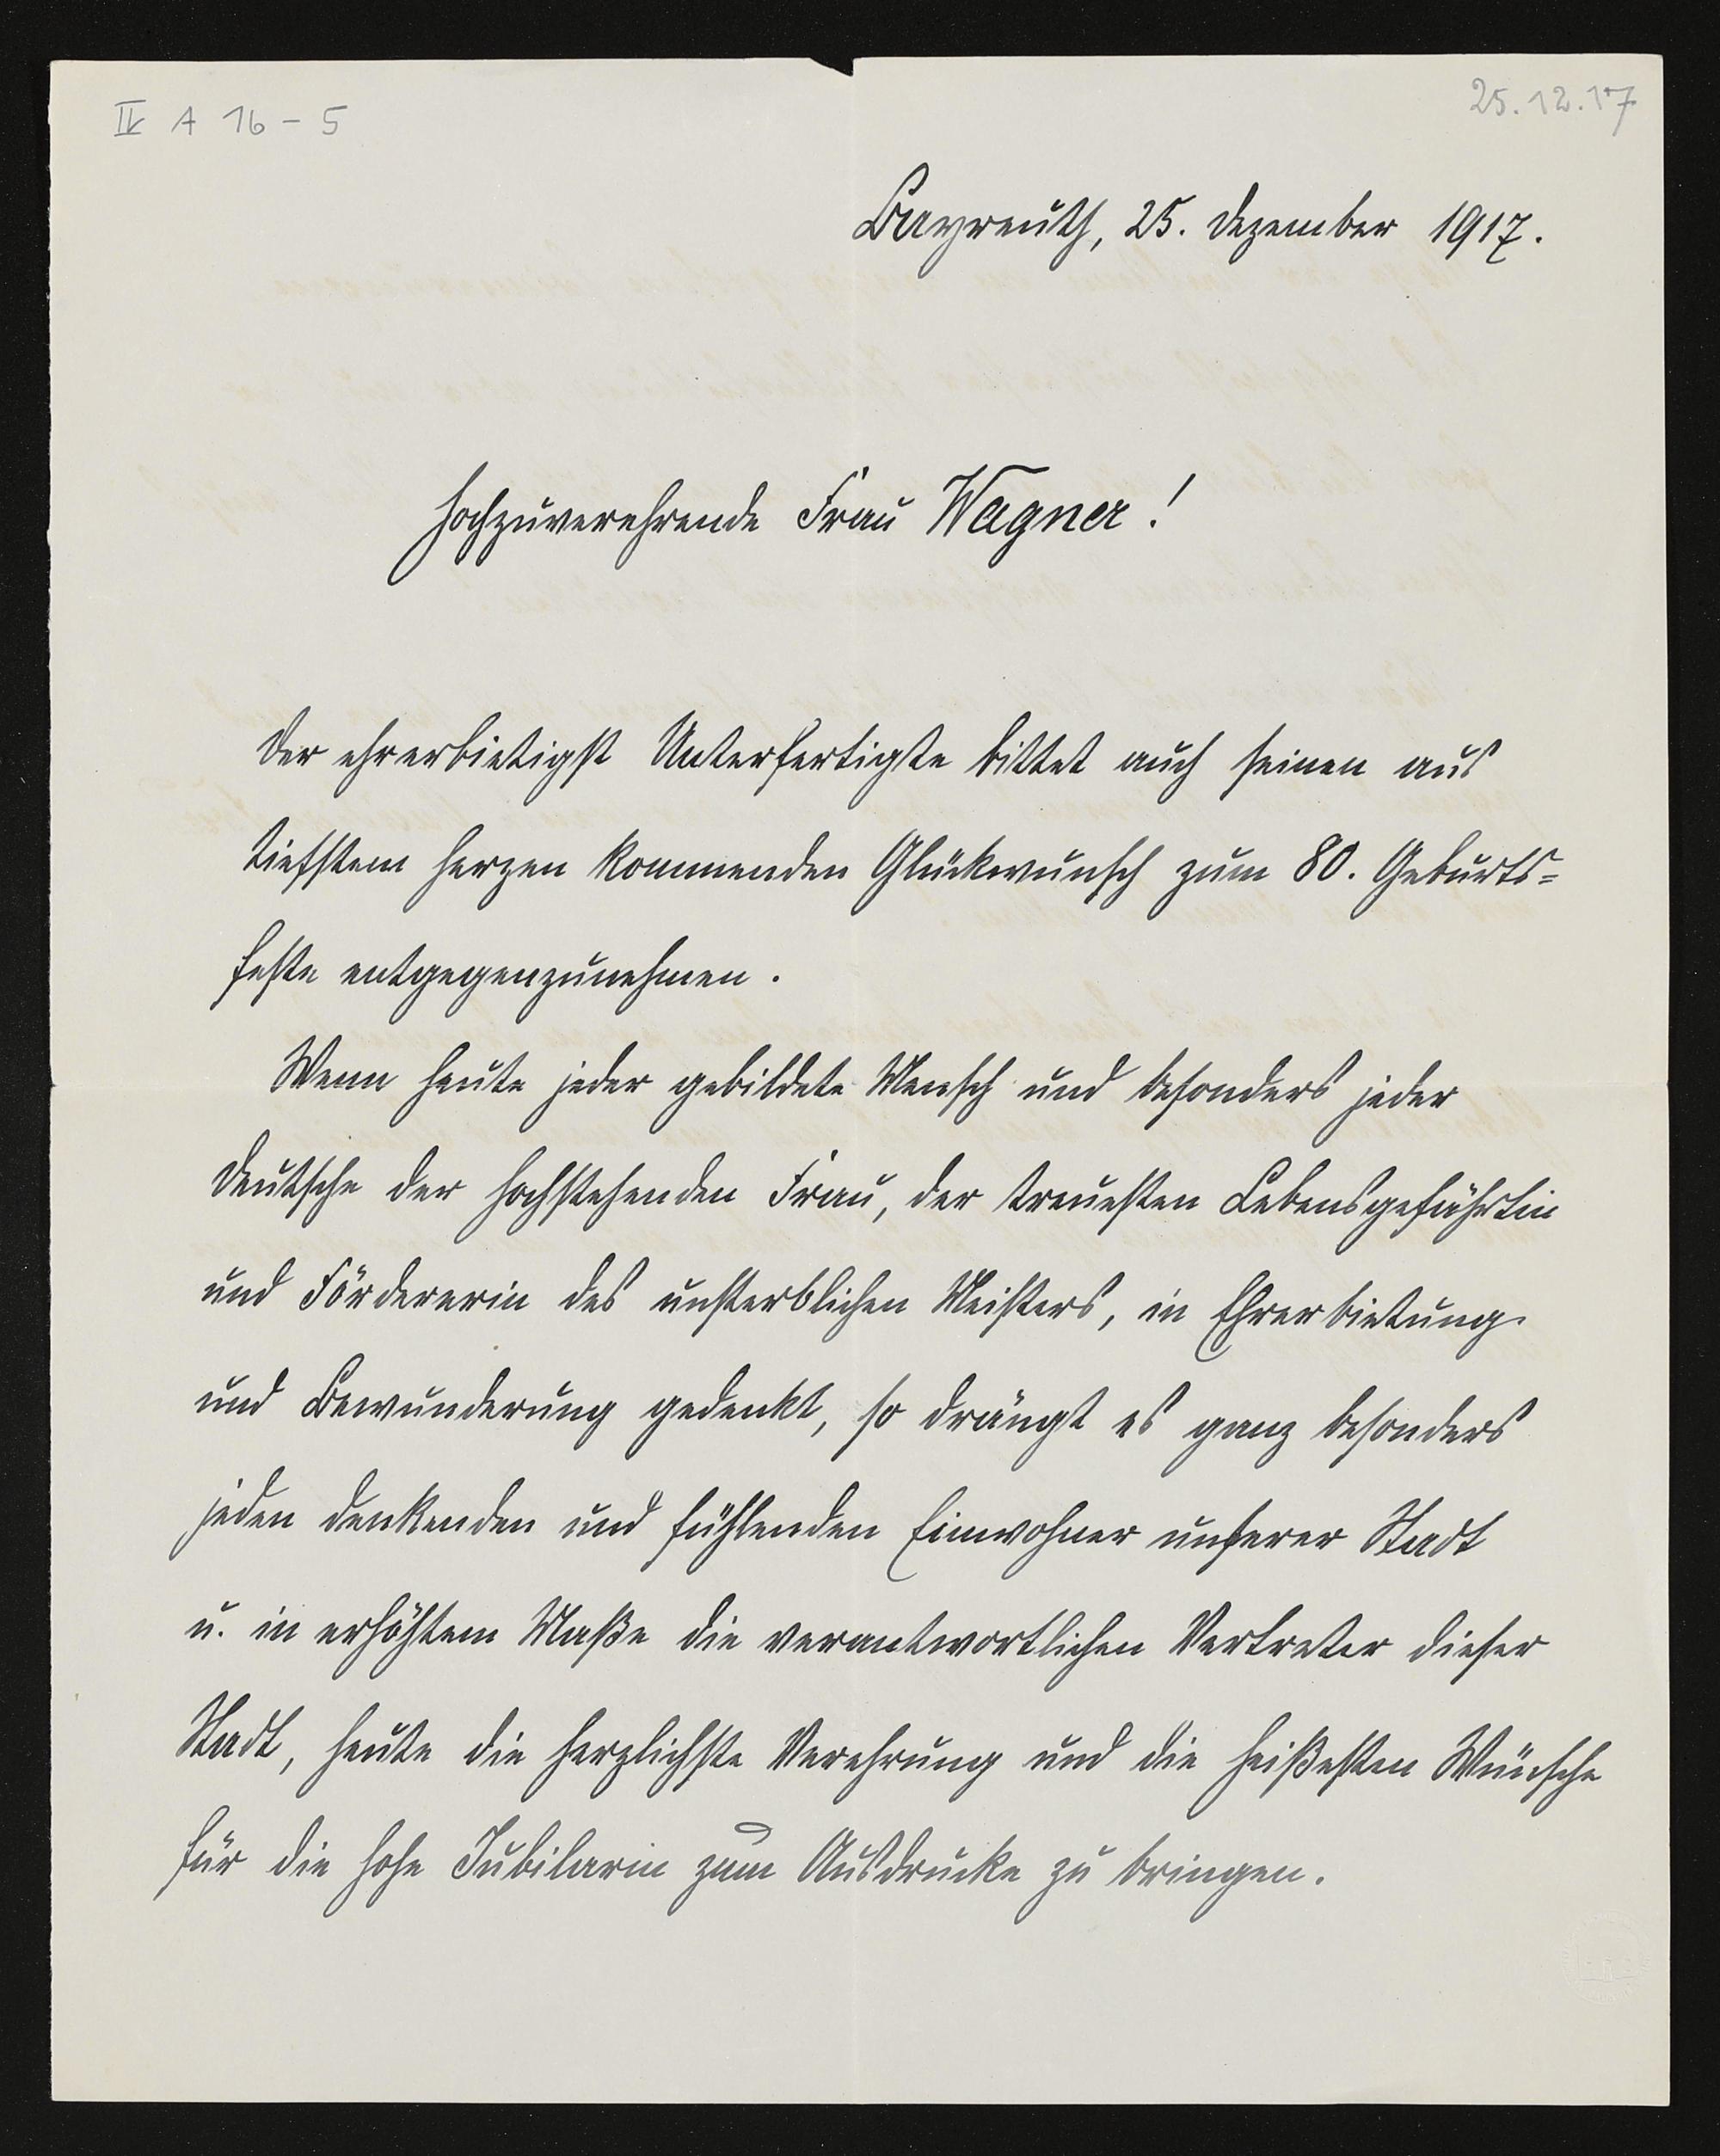 IV A 16 - 5
25.12.17
Bayreuth, 25. Dezember 1917.
Hochzuverehrende Frau Wagner!
Der ehrerbietigst Unterfertigte bittet auch seinen aus
tiefstem Herzen kommenden Glückwunsch zum 80. Geburts=
feste entgegenzunehmen.
Wenn heute jeder gebildete Mensch und besonders jeder
Deutsche der hochstehenden Frau, der treuesten Lebensgefährtin
und Fördererin des unsterblichen Meisters, in Ehrerbietung
und Bewunderung gedenkt, so drängt es ganz besonders
jeden denkenden und fühlenden Einwohner unserer Stadt
u. in erhöhtem Maße die verantwortlichen Vertreter dieser
Stadt, heute die herzlichste Verehrung und die heißesten Wünsche
für die hohe Jubilarin zum Ausdrucke zu bringen.